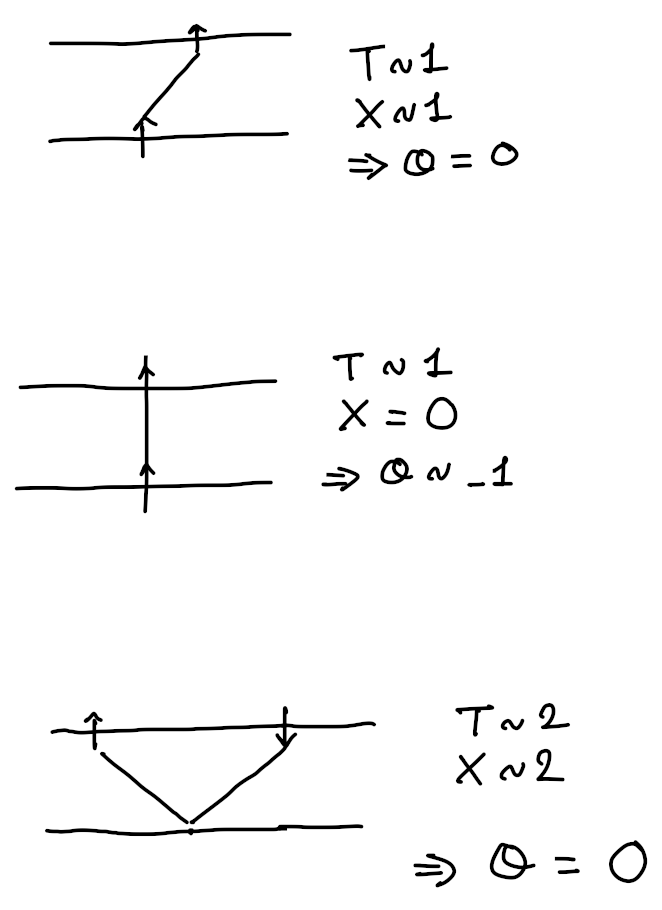 T ~ 1
X ~ 1
⇒ Θ = 0
T ~ 1
X = 0
⇒ Θ ~ -1
T ~ 2
X ~ 2
⇒ Θ = 0